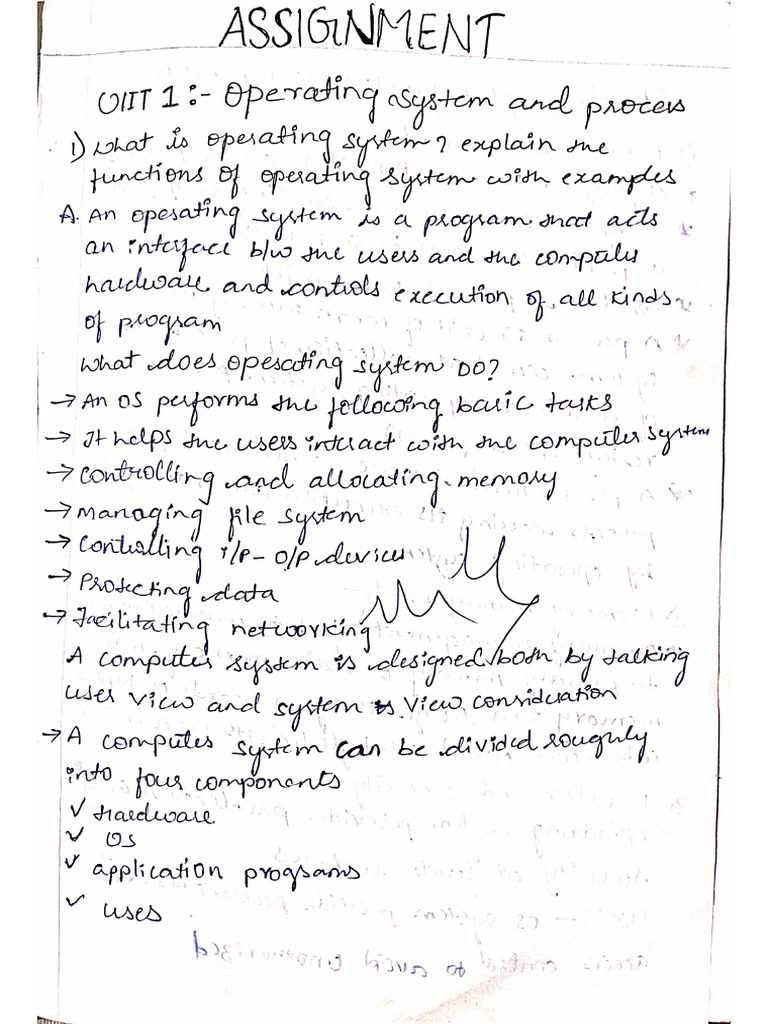 ASSIGNMENT
UNIT 1:- Operating system and process
1) What is operating system? explain the
functions of operating system with examples
A. An operating system is a program that acts
an interface b/w the users and the computer
hardware and controls execution of all kinds
of program
What does operating system DO?
→ An OS performs the following basic tasks
→ It helps the users interact with the computer system
→ controlling and allocating memory
→ Managing file system
→ Controlling i/p - O/P devices
→ Protecting data
→ Facilitating networking
A computer system is designed both by talking
user view and system is view consideration
→ A computer system can be divided roughly
into four components
✓ Hardware
✓ OS
✓ application programs
✓ users